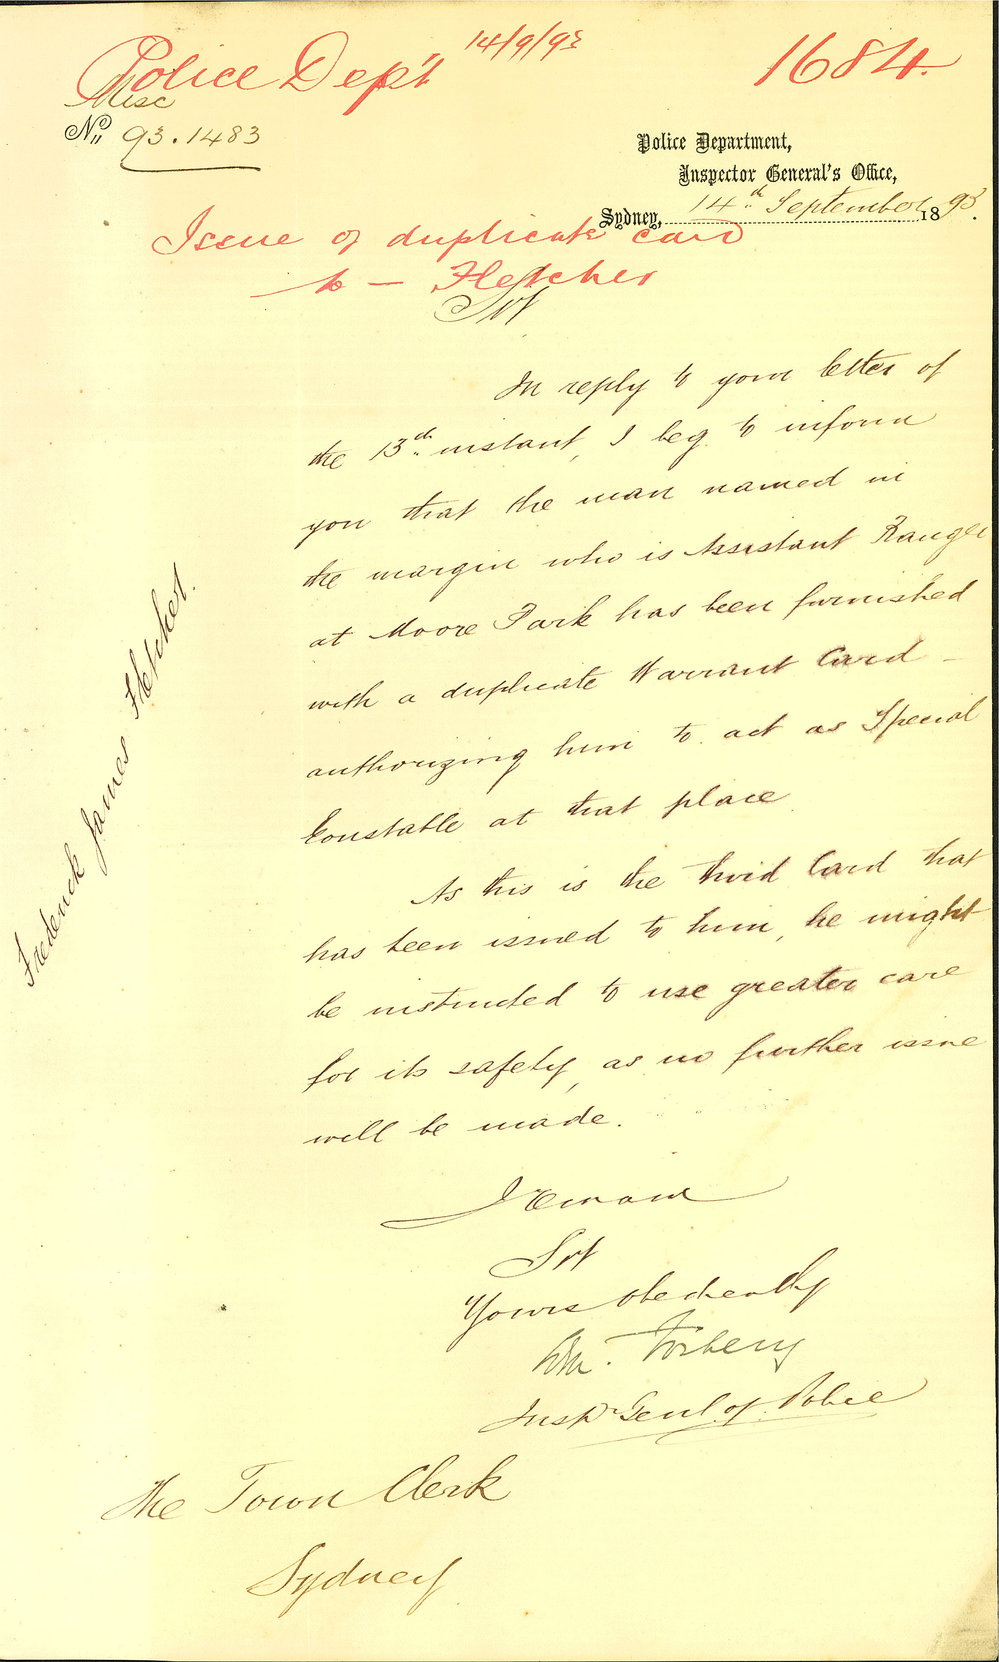 Police Dep't 14/9/93
1684.
Misc
No. 93.1483
Police Department,
Inspector General's Office,
Sydney, 14th September 1893.
Issue of duplicate card
to — Fletcher
Sir
In reply to your letter of
the 13th instant, I beg to inform
you that the man named in
the margin who is Assistant Ranger
at Moore Park has been furnished
with a duplicate Warrant Card
authorizing him to act as Special
Constable at that place
Frederick James Fletcher.
As this is the third Card that
has been issued to him, he might
be instructed to use greater care
for its safety, as no further issue
will be made.
I remain
Sir
Yours obediently
Edm. Fosbery
Inspr Genl. of Police
The Town Clerk
Sydney